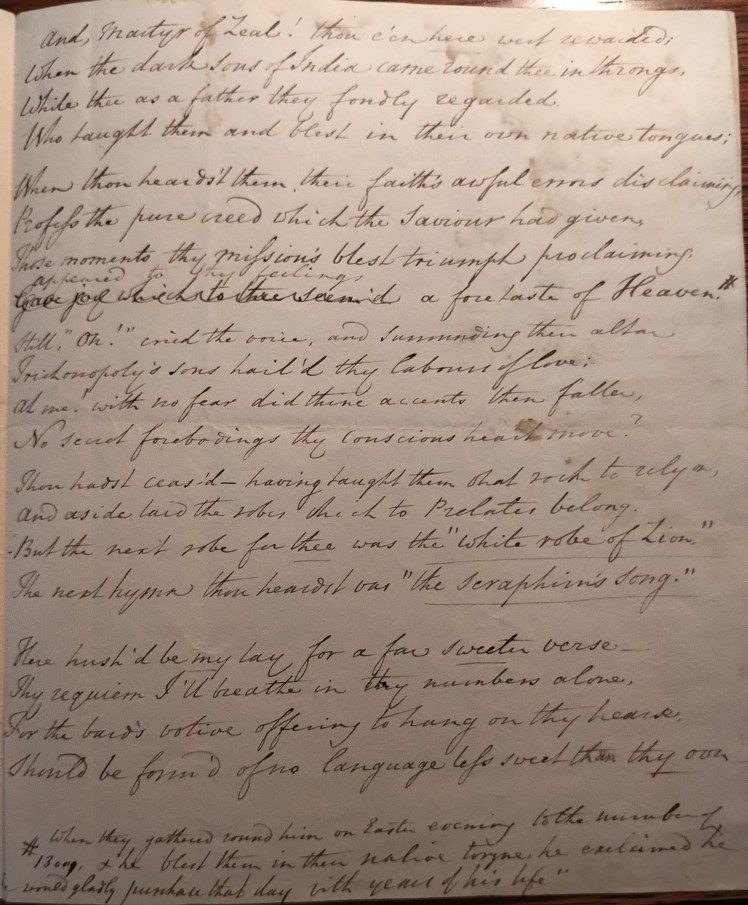 And, Martyr of Zeal! thou e'en here wert rewarded;
When the dark sons of India came round thee in throngs,
While thee as a father they fondly regarded
Who taught them and blest in their own native tongues;
When thou heards't them, their faith's awful errors disclaiming,
Profess the pure creed which the Saviour had given,
Those moments thy mission's blest triumph proclaiming.
appeared to thy feelings
Gave joy which to thee seem'd a foretaste of Heaven. #
Still, "On!" cried the voice, and surrounding their altar
Trichonopoly's sons hail'd thy labours of love;
Ah me! with no fear did thine accents then falter,
No secret forebodings thy conscious heart move?
Thou hadst ceas'd — having taught them what rock to rely on,
And aside laid the robes which to Prelates belong.
But the next robe for thee was the "white robe of Zion."
The next hymn thou heardst was "the Seraphim's song."
Here hush'd be my lay for a far sweeter verse —
Thy requiem I'll breathe in thy numbers alone,
For the bard's votive offering to hang on thy hearse,
Should be form'd of no language less sweet than thy own
# When they gathered round him on Easter evening to the number of
1300, & he blest them in their native tongue, he exclaimed he
would gladly purchase that day with years of his life"